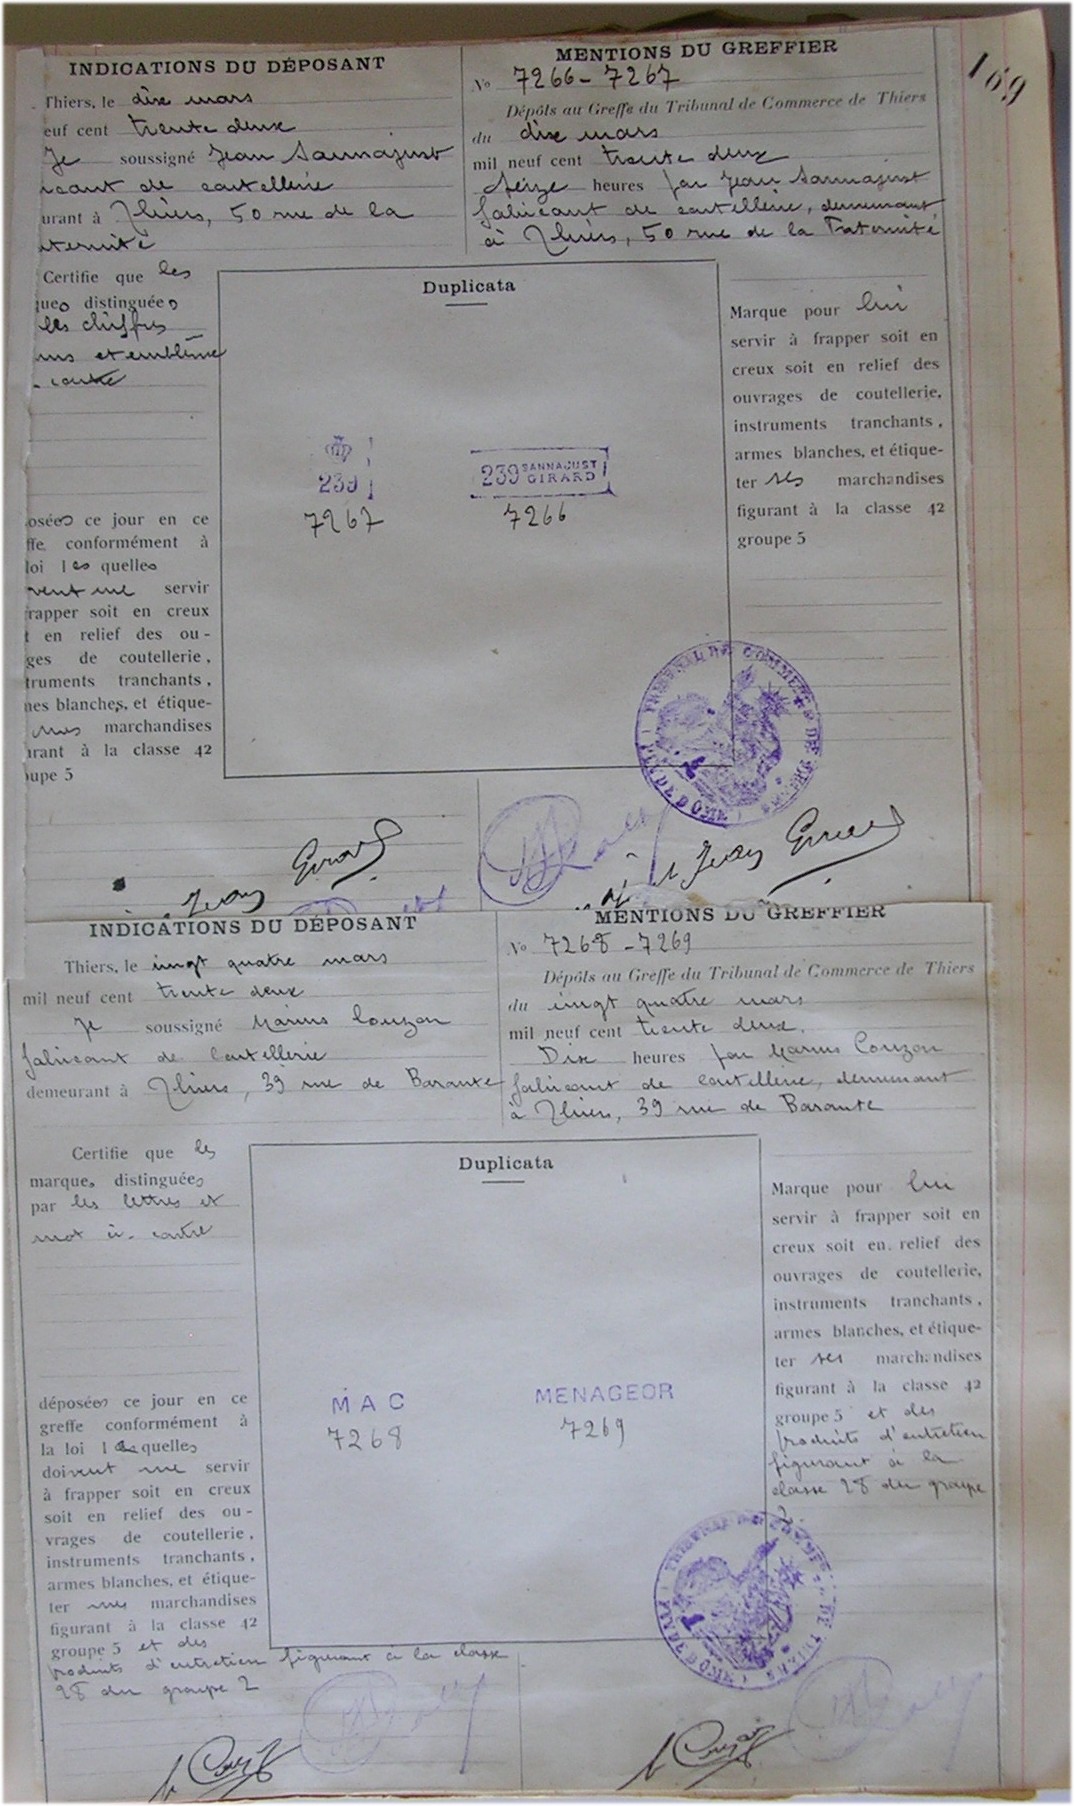 169
INDICATIONS DU DÉPOSANT
Thiers, le dix mars
euf cent trente deux
Je soussigné Jean Sannajust
icant de coutellerie
urant à Thiers, 50 rue de la
aternité
Certifie que les
ques distinguées
les chiffres
ms et emblème
contre
osées ce jour en ce
ffe conformément à
loi les quelles
vent me servir
frapper soit en creux
t en relief des ou-
ges de coutellerie,
truments tranchants,
nes blanches, et étique-
mes marchandises
urant à la classe 42
oupe 5
Jean Girard
MENTIONS DU GREFFIER
No 7266-7267
Dépôts au Greffe du Tribunal de Commerce de Thiers
du dix mars
mil neuf cent trente deux
seize heures par Jean Sannajust
fabricant de coutellerie, demeurant
à Thiers, 50 rue de la Fraternité
Duplicata
239
7267
239 SANNAJUST
GIRARD
7266
Marque pour lui
servir à frapper soit en
creux soit en relief des
ouvrages de coutellerie,
instruments tranchants,
armes blanches, et étique-
ter ses marchandises
figurant à la classe 42
groupe 5
TRIBUNAL DE COMMERCE DE THIERS
PUY DE DOME
Jean Girard
INDICATIONS DU DÉPOSANT
Thiers, le vingt quatre mars
mil neuf cent trente deux
Je soussigné Marius Couzon
fabricant de coutellerie
demeurant à Thiers, 39 rue de Barante
Certifie que les
marques distinguées
par les lettres et
mot ci-contre
déposées ce jour en ce
greffe conformément à
la loi les quelles
doivent me servir
à frapper soit en creux
soit en relief des ou-
vrages de coutellerie,
instruments tranchants,
armes blanches, et étique-
ter mes marchandises
figurant à la classe 42
groupe 5 et des
produits d'entretien figurant à la classe
28 du groupe 2
MENTIONS DU GREFFIER
No 7268-7269
Dépôts au Greffe du Tribunal de Commerce de Thiers
du vingt quatre mars
mil neuf cent trente deux.
Dix heures par Marius Couzon
fabricant de coutellerie, demeurant
à Thiers, 39 rue de Barante
Duplicata
MAC
7268
MENAGEOR
7269
Marque pour lui
servir à frapper soit en
creux soit en relief des
ouvrages de coutellerie,
instruments tranchants,
armes blanches, et étique-
ter ses marchandises
figurant à la classe 42
groupe 5 et des
produits d'entretien
figurant à la
classe 28 du groupe
2.
TRIBUNAL DE COMMERCE DE THIERS
PUY DE DOME